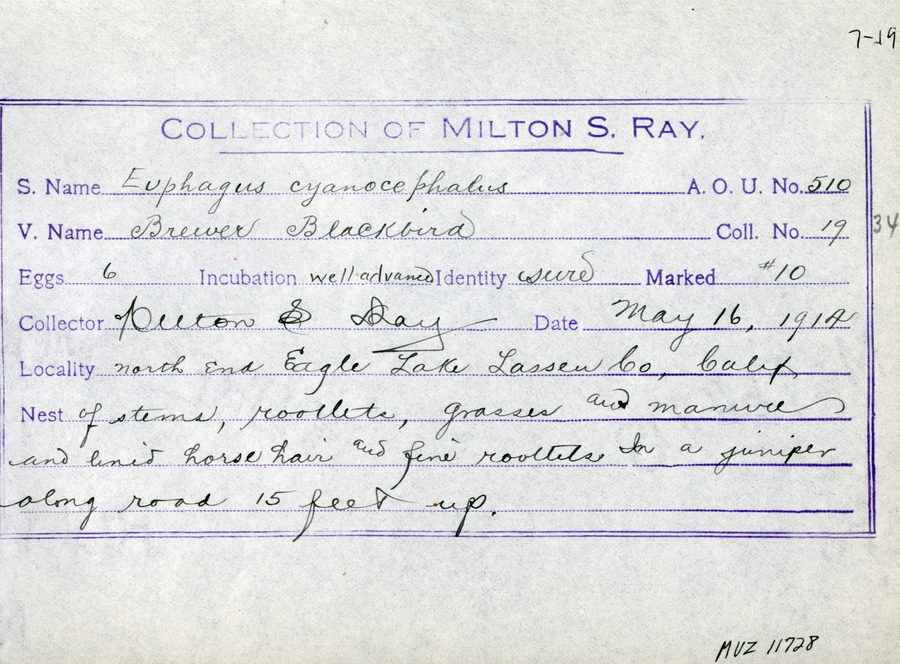 7-19
COLLECTION OF MILTON S. RAY.
S. Name Euphagus cyanocephalus A. O. U. No. 510
V. Name Brewer Blackbird Coll. No. 19 34
Eggs 6 Incubation well advanced Identity sure Marked #10
Collector Milton S Ray Date May 16, 1914
Locality north End Eagle Lake Lassen Co, Calif
Nest of stems, rootlets, grasses and manure
and lined horse hair and fine rootlets In a juniper
along road 15 feet up.
MVZ 11728